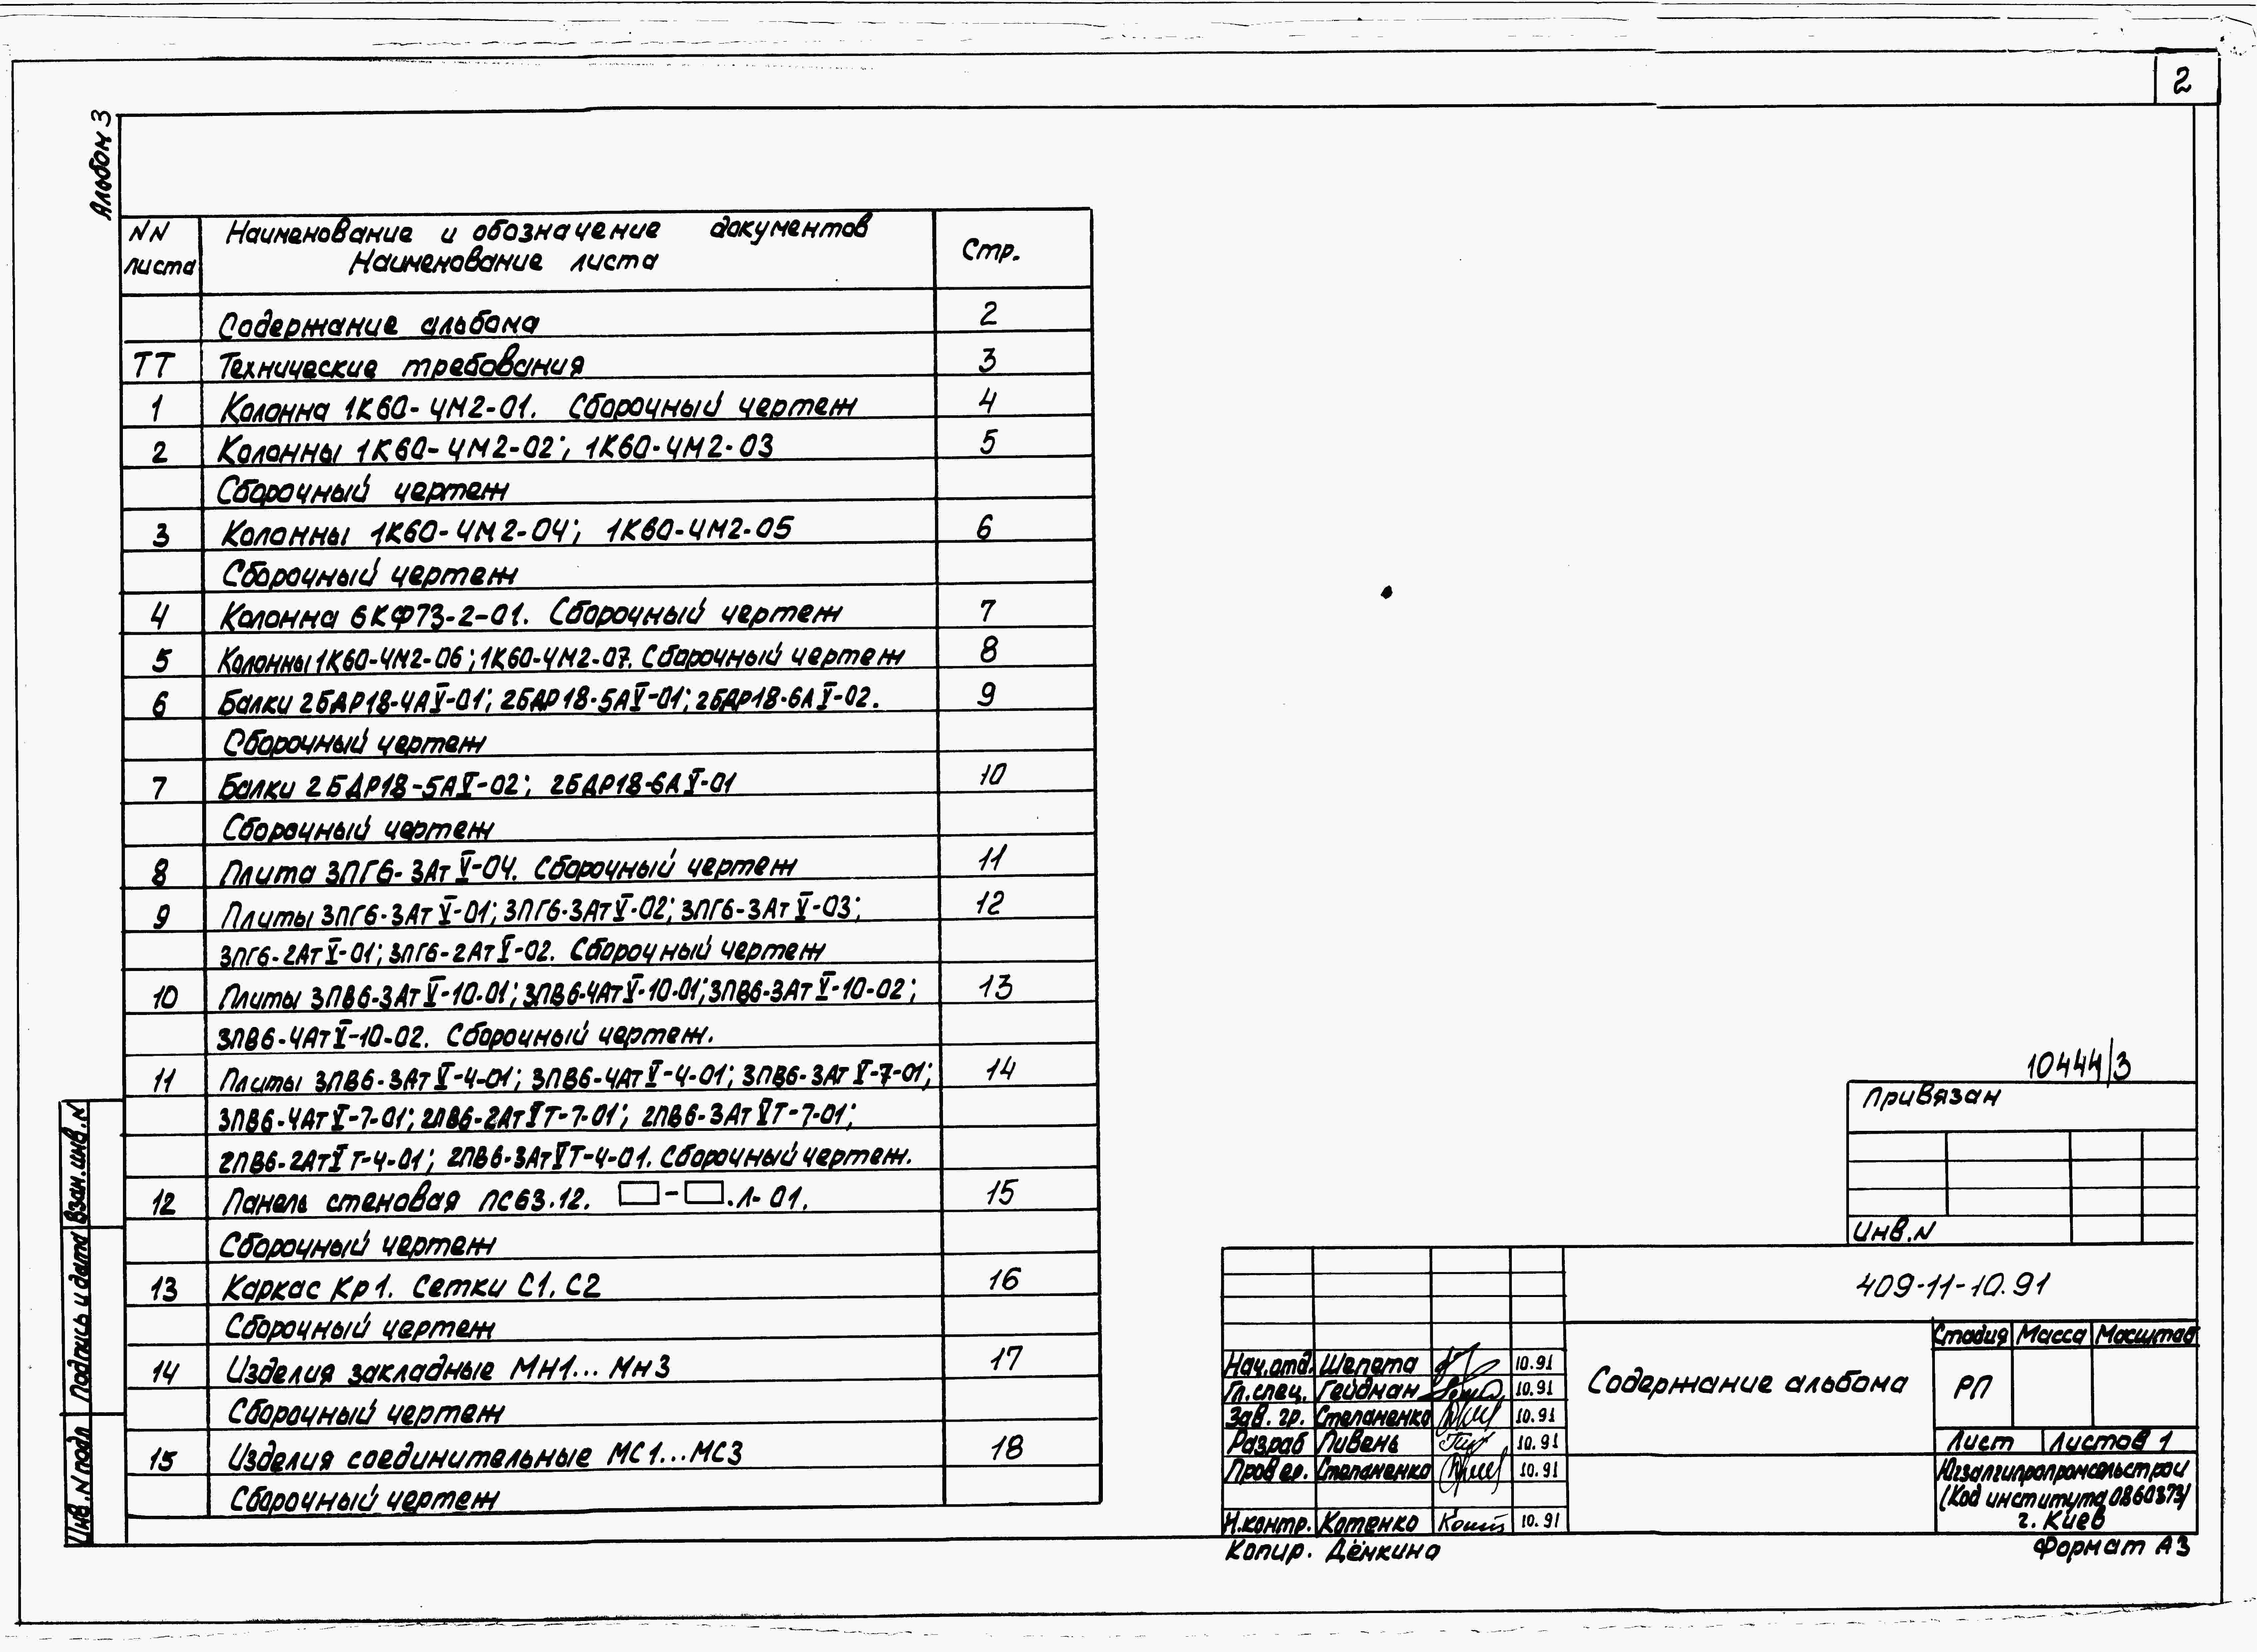 2
Альбом 3
NN листа
Наименование и обозначение документов
Наименование листа
Стр.
Содержание альбома 2
ТТ Технические требования 3
1 Колонна 1К60-4М2-01. Сборочный чертеж 4
2 Колонны 1К60-4М2-02; 1К60-4М2-03 5
Сборочный чертеж
3 Колонны 1К60-4М2-04; 1К60-4М2-05 6
Сборочный чертеж
4 Колонна 6КФ73-2-01. Сборочный чертеж 7
5 Колонны 1К60-4М2-06; 1К60-4М2-07. Сборочный чертеж 8
6 Балки 2БДР18-4АV-01; 2БДР18-5АV-01; 2БДР18-6АV-02. 9
Сборочный чертеж
7 Балки 2БДР18-5АV-02; 2БДР18-6АV-01 10
Сборочный чертеж
8 Плита 3ПГ6-3АтV-04. Сборочный чертеж 11
9 Плиты 3ПГ6-3АтV-01; 3ПГ6-3АтV-02; 3ПГ6-3АтV-03; 12
3ПГ6-2АтV-01; 3ПГ6-2АтV-02. Сборочный чертеж
10 Плиты 3ПВ6-3АтV-10-01; 3ПВ6-4АтV-10-01; 3ПВ6-3АтV-10-02; 13
3ПВ6-4АтV-10-02. Сборочный чертеж.
11 Плиты 3ПВ6-3АтV-4-01; 3ПВ6-4АтV-4-01; 3ПВ6-3АтV-7-01; 14
3ПВ6-4АтV-7-01; 2ПВ6-2АтVТ-7-01; 2ПВ6-3АтVТ-7-01;
2ПВ6-2АтVТ-4-01; 2ПВ6-3АтVТ-4-01. Сборочный чертеж.
12 Панель стеновая ПС63.12. □-□.Л-01. 15
Сборочный чертеж
13 Каркас Кр1. Сетки С1, С2 16
Сборочный чертеж
14 Изделия закладные МН1...МН3 17
Сборочный чертеж
15 Изделия соединительные МС1...МС3 18
Сборочный чертеж
Взам.инв.N
Подпись и дата
Инв.N подл
10444/3
Привязан
Инв.N
409-11-10.91
Нач.отд. Шепета 10.91
Гл.спец. Гейдман 10.91
Зав.гр. Степаненко 10.91
Разраб Пивень 10.91
Провер. Степаненко 10.91
Н.контр. Котенко 10.91
Содержание альбома
Стадия Масса Масштаб
РП
Лист Листов 1
Югзапгипропромсельстрой
(Код института 0860373)
г. Киев
Копир. Дёмкина
Формат А3